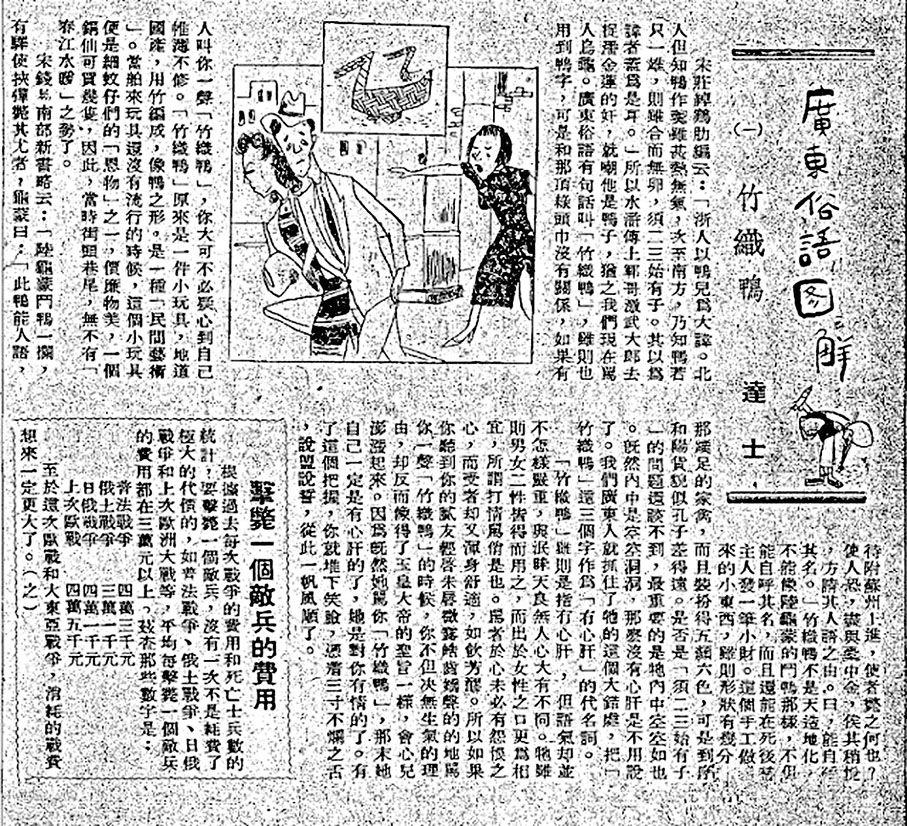 廣東俗語図解
(一)竹織鴨
達士
宋莊綽鷄肋編云:「浙人以鴨兒爲大諱。北
人但知鴨作羹雖甚熱無氣,後至南方,乃知鴨若
只一雄,則雖合而無卵,須二三始有子。其以爲
諱者蓋爲是耳。」所以水滸傳上鄆哥激武大郎去
捉潘金蓮的奸,就嘲他是鴨子,猶之我們現在罵
人烏龜。廣東俗語有句話叫「竹織鴨」,雖則也
用到鴨字,可是和那頂綠頭巾沒有關係,如果有
人叫你一聲「竹織鴨」,你大可不必要心到自己
帷薄不修。「竹織鴨」原來是一件小玩具,地道
國產,用竹編成,像鴨之形。是一種「民間藝術
」。當舶來玩具還沒有流行的時候,這個小玩具
便是細蚊仔們的「恩物」之一,價廉物美,一個
銅仙可買幾隻,因此,當時街頭巷尾,無不有「
春江水暖」之勢了。
宋錢易南部新書略云:「陸龜蒙鬥鴨一欄,
有驛使挾彈斃其尤者,龜蒙曰:「此鴨能人語,
待附蘇州上進,使者斃之何也?
使人恐,盡與橐中金,俟其稍悅
,方請其人語之由。曰,能自呼
其名。」竹織鴨不是天造地化,
不能像陸龜蒙的鬥鴨那樣,不但
能自呼其名,而且還能在死後替
主人發一筆小財。這個手工做
來的小東西,雖則形狀有幾分
那蹼足的家禽,而且裝扮得五顏六色,可是到所
和陽貨貌似孔子差得遠。是否是「須二三始有子
」的問題還談不到,最重要的是牠內中空空如也
。既然內中是空空洞洞,那麼沒有心肝是不用說
了。我們廣東人就抓住了牠的這個大錯處,把「
竹織鴨」這三個字作爲「冇心肝」的代名詞。
「竹織鴨」雖則是指冇心肝,但語氣却並
不怎樣嚴重,與泯眛天良無人心大有不同。牠雖
則男女二性皆得而用之,而出於女性之口更爲相
宜,所謂打情罵俏是也。罵者於心未必有怨恨之
心,而受者却又渾身舒適,如飲芳醪。所以如果
你聽到你的膩友輕啓朱唇微露皓齒嬌聲的的地罵
你一聲「竹織鴨」的時候,你不但決無生氣的理
由,却反而像得了玉皇大帝的聖旨一樣,會心兒
澎漲起來。因爲既然她罵你「竹織鴨」,那末她
自己一定是有心肝的了,她是對你有情的了。有
了這個把握,你就堆下笑臉,憑着三寸不爛之舌
,設盟設誓,從此一帆風順了。
擊斃一個敵兵的費用
根據過去每次戰爭的費用和死亡士兵數的
統計,要擊斃一個敵兵,沒有一次不是耗費了
極大的代價的,如普法戰爭、俄土戰爭、日俄
戰爭和上次歐洲大戰等,平均每擊斃一個敵兵
的費用都在三萬元以上。茲查那些數字是:
普法戰爭 四萬三千元
俄土戰爭 三萬一千元
日俄戰爭 四萬一千元
上次歐戰 四萬五千元
至於這次歐戰和大東亞戰爭,消耗的戰費
想來一定更大了。(之)